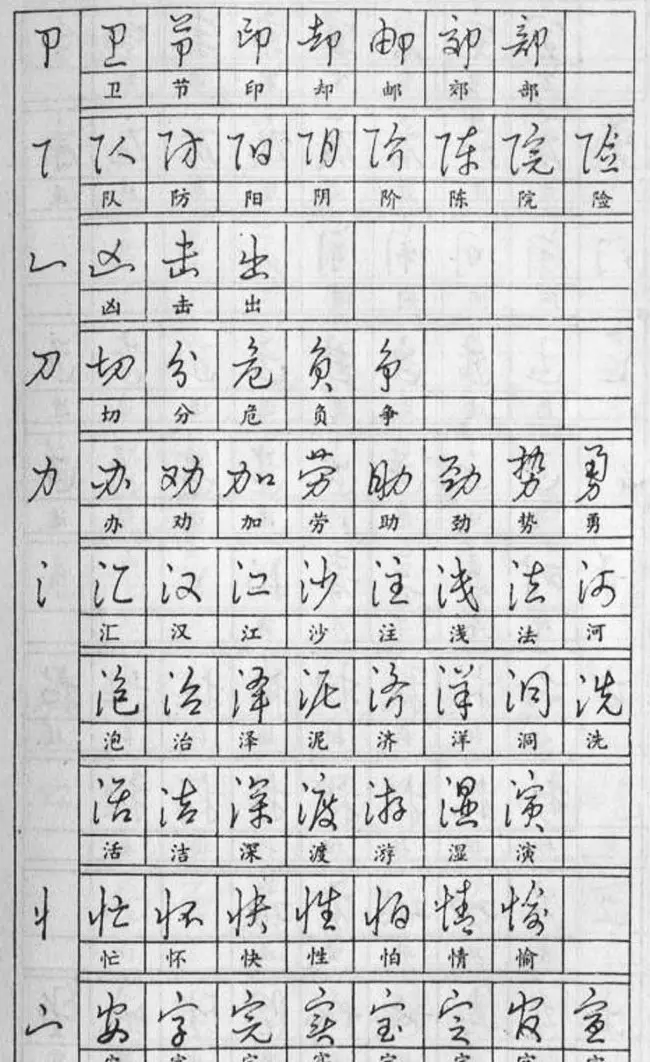 卩 卫 节 印 却 邮 郊 部
卫 节 印 却 邮 郊 部
阝 队 防 阳 阴 阶 陈 院 险
队 防 阳 阴 阶 陈 院 险
凵 凶 击 出
凶 击 出
刀 切 分 危 负 争
切 分 危 负 争
力 办 劝 加 劳 助 劲 势 勇
办 劝 加 劳 助 劲 势 勇
氵 汇 汉 江 沙 注 浅 法 河
汇 汉 江 沙 注 浅 法 河
泡 治 泽 泥 济 洋 洞 洗
泡 治 泽 泥 济 洋 洞 洗
活 洁 深 渡 游 湿 演
活 洁 深 渡 游 湿 演
忄 忙 怀 快 性 怕 情 愉
忙 怀 快 性 怕 情 愉
宀 安 字 完 实 宝 定 官 宣